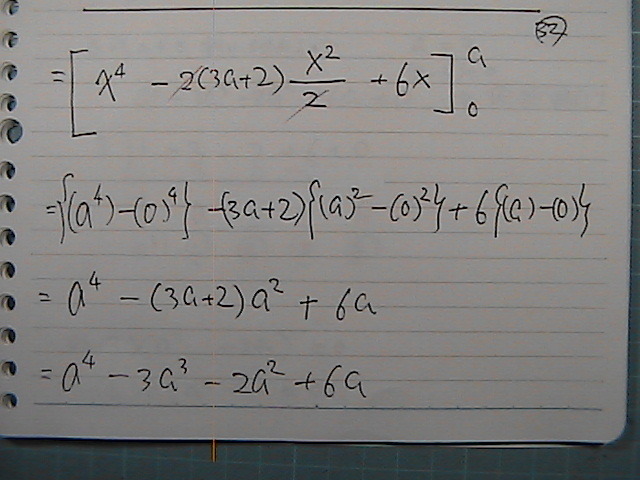 (32)
= [ x^4 - 2(3a+2) x^2/2 + 6x ]_0^a
= {(a^4) - (0)^4} - (3a+2) {(a)^2 - (0)^2} + 6 {(a) - (0)}
= a^4 - (3a+2) a^2 + 6a
= a^4 - 3a^3 - 2a^2 + 6a